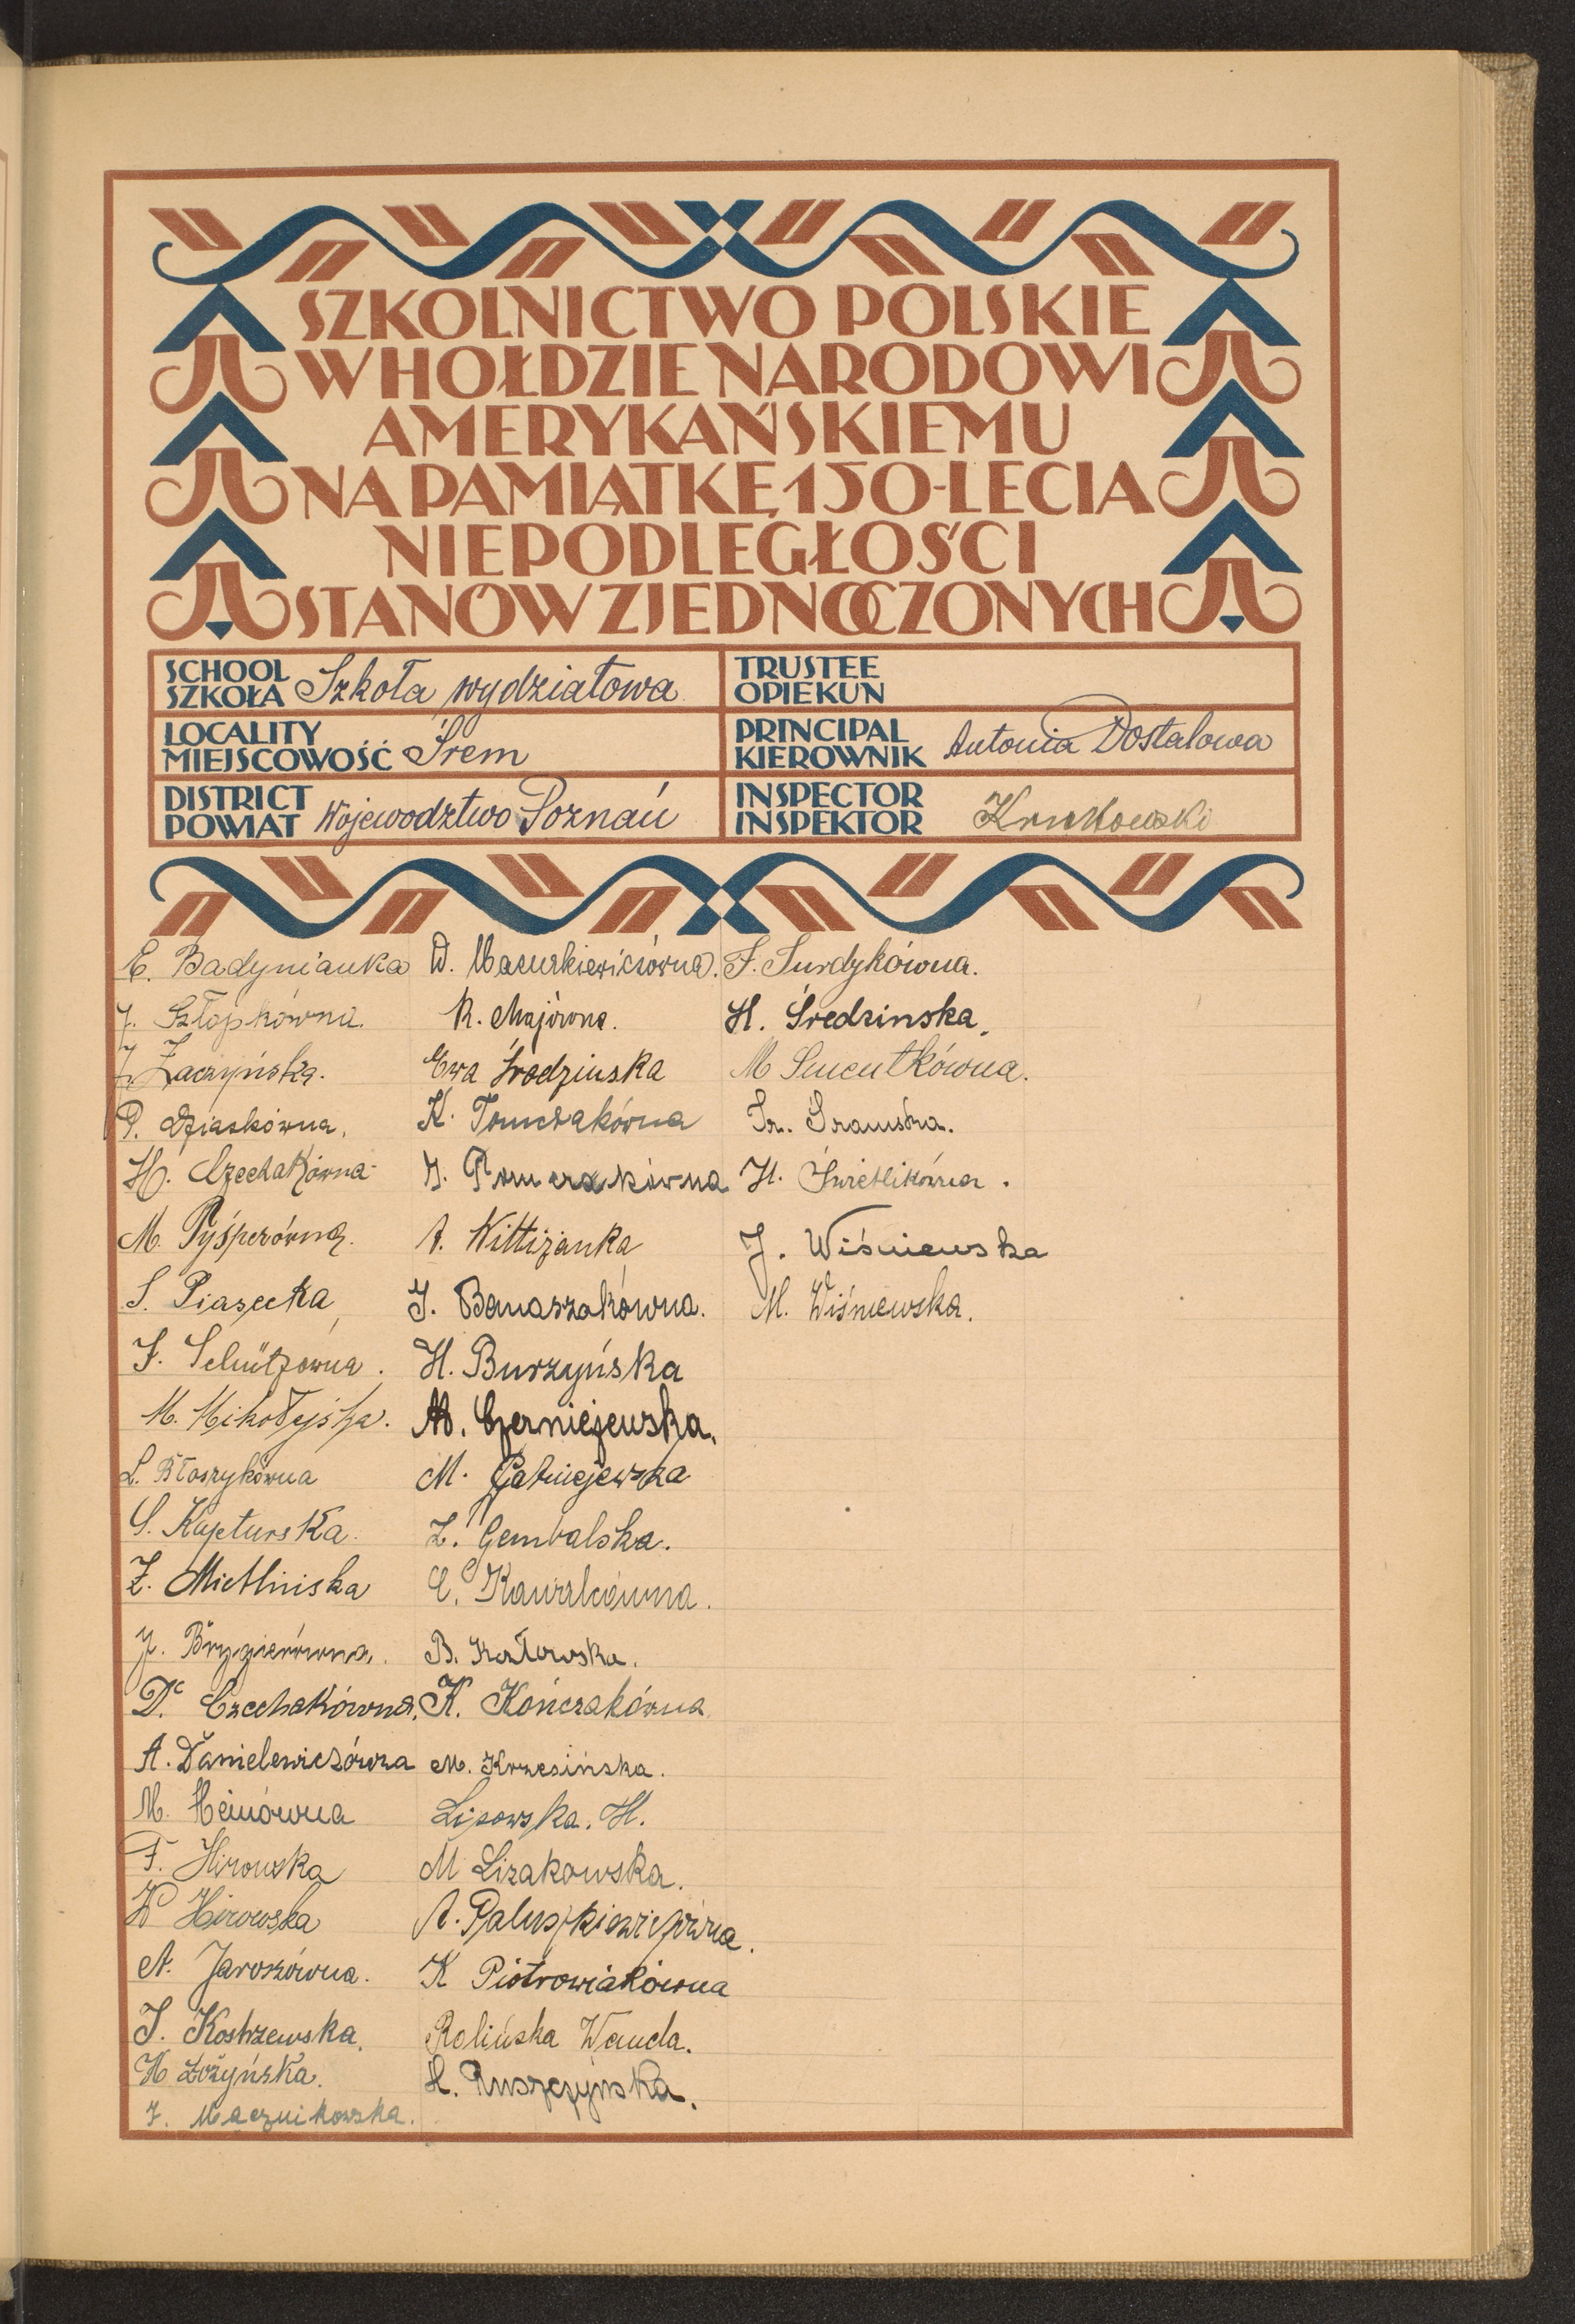 SZKOLNICTWO POLSKIE
W HOŁDZIE NARODOWI
AMERYKAŃSKIEMU
NA PAMIĄTKĘ 150-LECIA
NIEPODLEGŁOŚCI
STANÓW ZJEDNOCZONYCH
SCHOOL
SZKOŁA Szkoła wydziałowa
LOCALITY
MIEJSCOWOŚĆ Śrem
DISTRICT
POWIAT Województwo Poznań
TRUSTEE
OPIEKUN
PRINCIPAL
KIEROWNIK Antonia Dostalowa
INSPECTOR
INSPEKTOR
E. Badynianka
J. Szłapkówna
J. Zaczyńska.
P. Dziaskówna.
H. Czechakówna
M. Pyśperówna.
S. Piasecka
F. Schützówna.
M. Mikołejska.
L. Błoszykówna
S. Kapturska.
Z. Mietlińska
J. Brygierówna.
D. Czechakówna.
A. Danielewiczówna
M. Heinówna
F. Hirowska
W Hirowska
A. Jaroszówna.
J. Kostrzewska.
H Łożyńska.
J. Mącznikowska.
W. Mazurkiewiczówna.
R. Majówna.
Ewa Środzińska
K. Tomczakówna
J. Tomczakówna
A. Wittiżanka
J. Banaszakówna.
H. Burzyńska
M. Czerniejewska.
M. Gatniejewska
Z. Gembalska.
E. Kawalcówna.
B. Kozłowska.
K. Kończakówna
M. Krzesińska.
Lisowska. H.
M Lizakowska.
A. Paluszkiewiczówna.
K Piotrowiakówna
Rolińska Wanda.
H. Ruszczyńska.
F. Surdykówna.
H. Średzinska.
M Smentkówna.
H. Świetlikówna.
J. Wiśniewska
M. Wiśniewska.